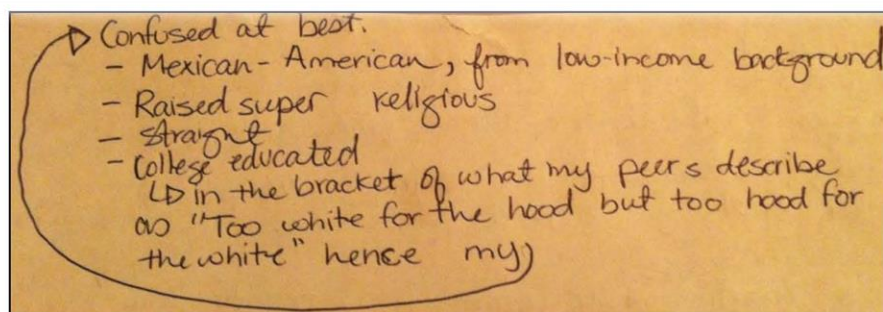 Confused at best.
- Mexican-American, from low-income background
- Raised super religious
- straight
- College educated
↳ in the bracket of what my peers describe
as "Too white for the hood but too hood for
the white" hence my